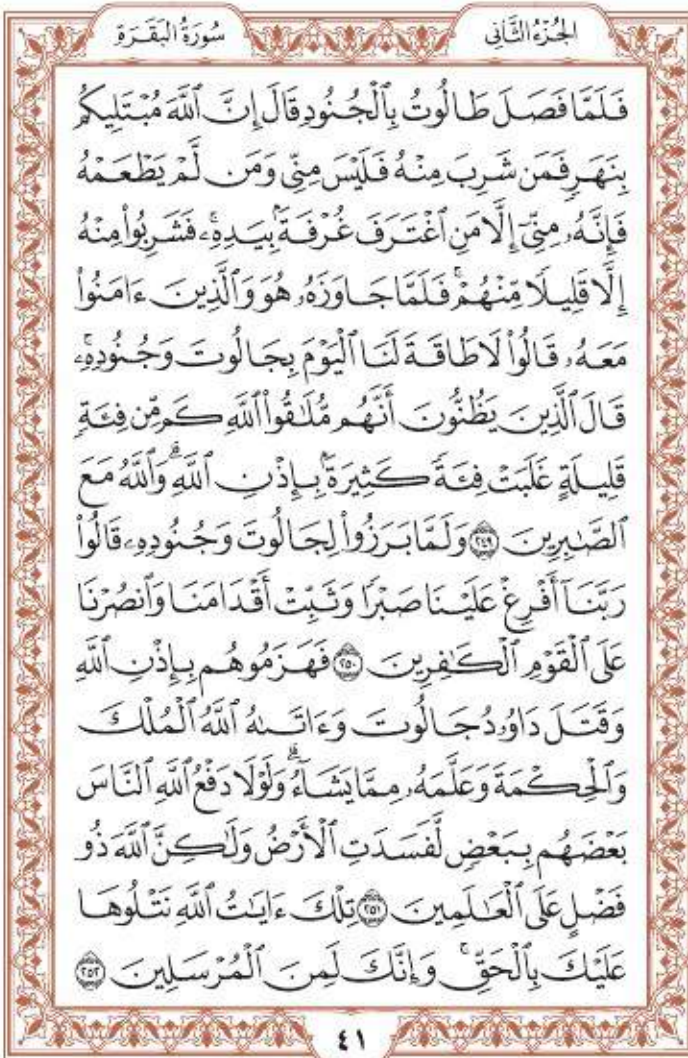 سُورَةُ البَقَرَةِ
الجُزْءُ الثَّانِي
فَلَمَّا فَصَلَ طَالُوتُ بِٱلْجُنُودِ قَالَ إِنَّ ٱللَّهَ مُبْتَلِيكُم
بِنَهَرٍ فَمَن شَرِبَ مِنْهُ فَلَيْسَ مِنِّي وَمَن لَّمْ يَطْعَمْهُ
فَإِنَّهُۥ مِنِّيٓ إِلَّا مَنِ ٱغْتَرَفَ غُرْفَةَۢ بِيَدِهِۦۚ فَشَرِبُوا۟ مِنْهُ
إِلَّا قَلِيلًا مِّنْهُمْۚ فَلَمَّا جَاوَزَهُۥ هُوَ وَٱلَّذِينَ ءَامَنُوا۟
مَعَهُۥ قَالُوا۟ لَا طَاقَةَ لَنَا ٱلْيَوْمَ بِجَالُوتَ وَجُنُودِهِۦۚ
قَالَ ٱلَّذِينَ يَظُنُّونَ أَنَّهُم مُّلَٰقُوا۟ ٱللَّهِ كَم مِّن فِئَةٍ
قَلِيلَةٍ غَلَبَتْ فِئَةً كَثِيرَةَۢ بِإِذْنِ ٱللَّهِۗ وَٱللَّهُ مَعَ
ٱلصَّٰبِرِينَ ٢٤٩ وَلَمَّا بَرَزُوا۟ لِجَالُوتَ وَجُنُودِهِۦ قَالُوا۟
رَبَّنَآ أَفْرِغْ عَلَيْنَا صَبْرًا وَثَبِّتْ أَقْدَامَنَا وَٱنصُرْنَا
عَلَى ٱلْقَوْمِ ٱلْكَٰفِرِينَ ٢٥٠ فَهَزَمُوهُم بِإِذْنِ ٱللَّهِ
وَقَتَلَ دَاوُۥدُ جَالُوتَ وَءَاتَىٰهُ ٱللَّهُ ٱلْمُلْكَ
وَٱلْحِكْمَةَ وَعَلَّمَهُۥ مِمَّا يَشَآءُۗ وَلَوْلَا دَفْعُ ٱللَّهِ ٱلنَّاسَ
بَعْضَهُم بِبَعْضٍ لَّفَسَدَتِ ٱلْأَرْضُ وَلَٰكِنَّ ٱللَّهَ ذُو
فَضْلٍ عَلَى ٱلْعَٰلَمِينَ ٢٥١ تِلْكَ ءَايَٰتُ ٱللَّهِ نَتْلُوهَا
عَلَيْكَ بِٱلْحَقِّۚ وَإِنَّكَ لَمِنَ ٱلْمُرْسَلِينَ ٢٥٢
٤١